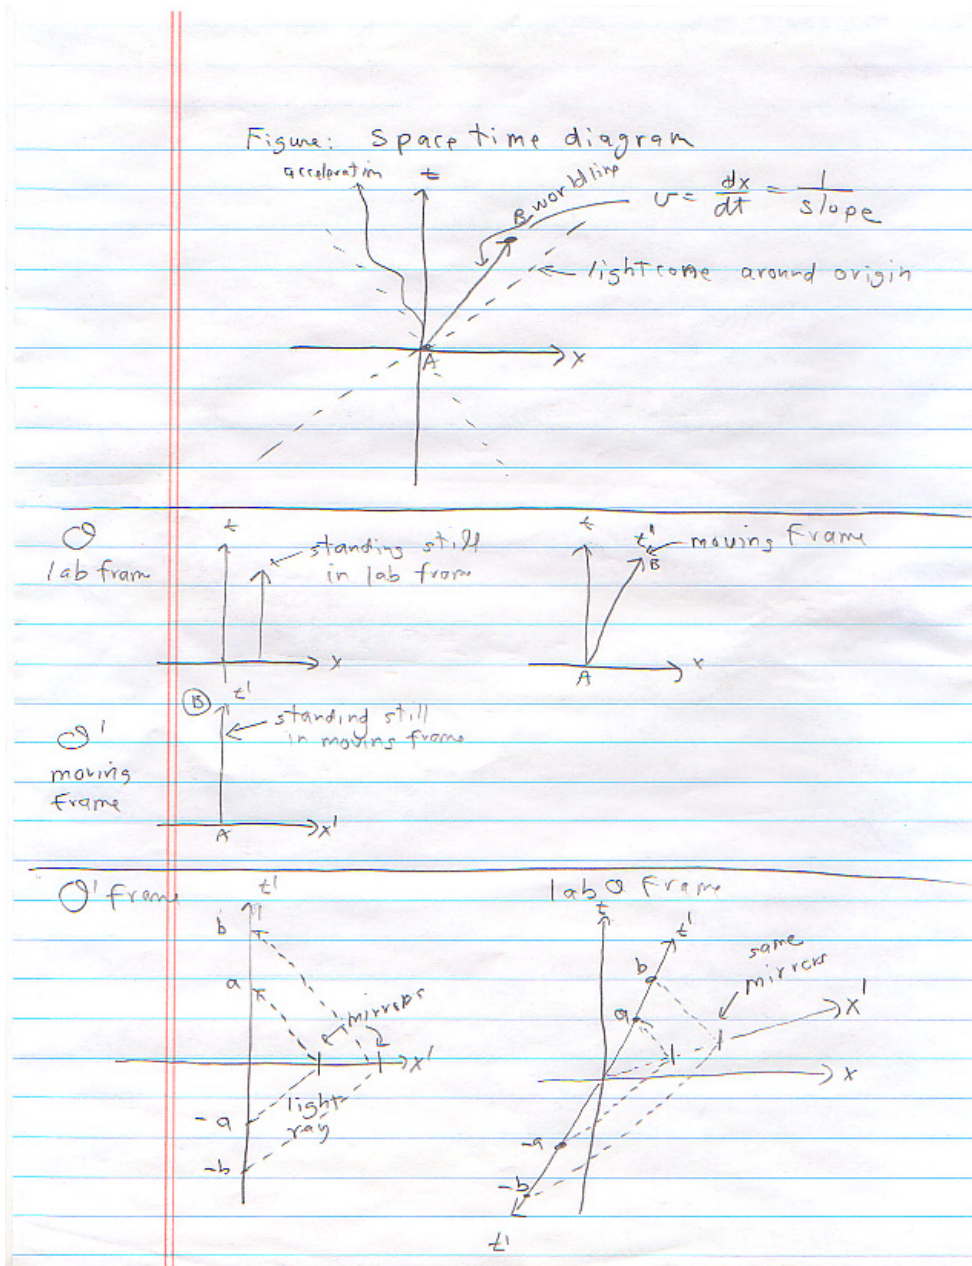 Figure: Space time diagram
acceleration
t
B worldline
v = dx/dt = 1/slope
lightcone around origin
A
x
O
lab frame
t
standing still
in lab frame
x
t
t'
moving Frame
B
A
x
O'
moving
frame
B
t'
standing still
in moving frame
A
x'
O' frame
t'
b
a
mirrors
x'
light
ray
-a
-b
lab O Frame
t
t'
same
mirrors
b
a
x'
x
-a
-b
t'